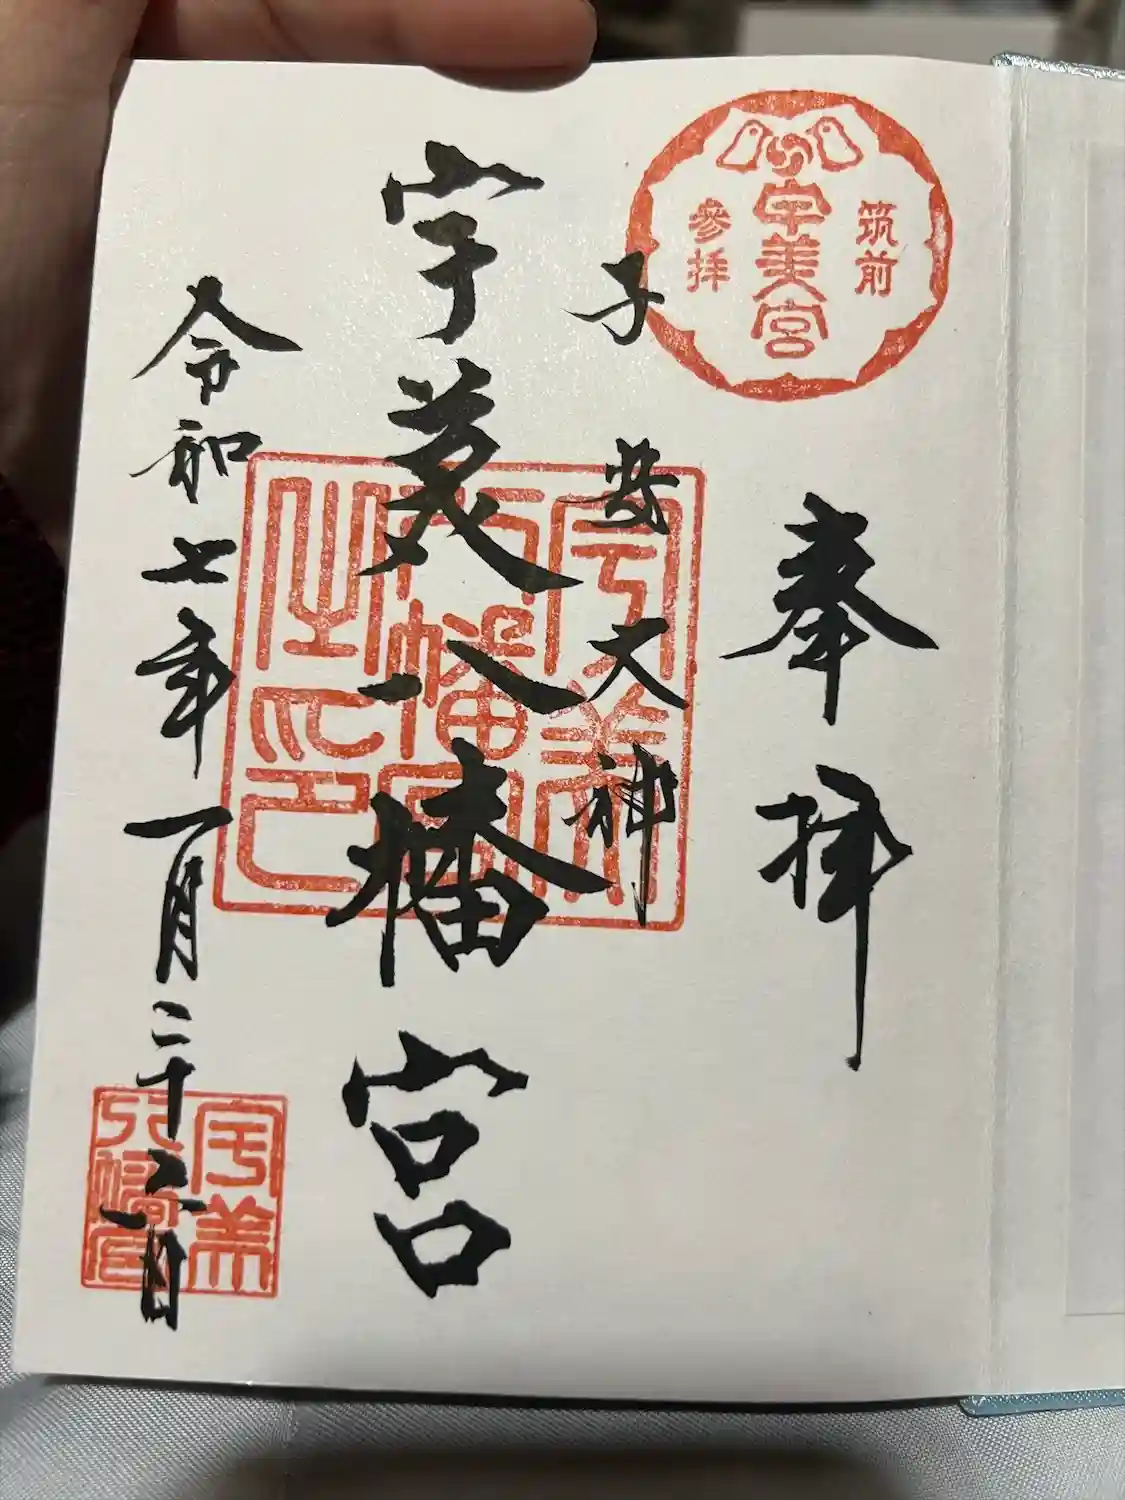 筑前
宇美宮
參拝
奉拝
子安大神
宇美八幡宮
令和七年一月二十二日
宇美
八幡宮
之印
宇美
八幡宮